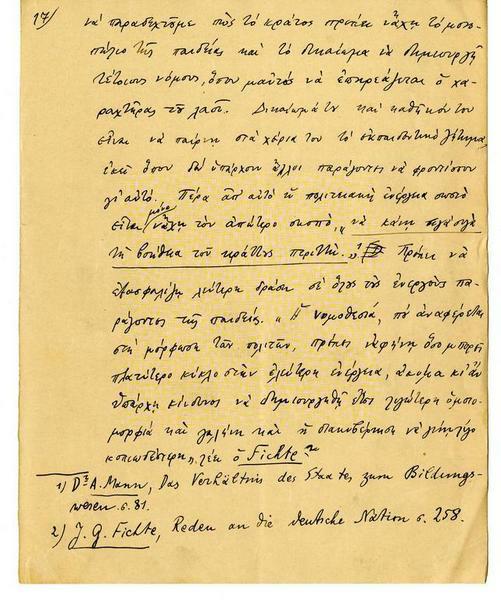 17/
νά παραδεχτοῦμε πώς τό κράτος πρέπει νἄχη τό μονο-
πώλιο τῆς παιδείας καί τό δικαίωμα νά δημιουργῆ
τέτοιους νόμους, ὅπου μ'αὐτούς νά ἐπηρεάζεται ὁ χα-
ραχτῆρας τοῦ λαοῦ. Δικαίωμά του καί καθῆκόν του
εἶναι νά παίρνη στά χέρια του τό ἐκπαιδευτικό ζήτημα,
ἐκεῖ ὅπου δέν ὑπάρχουν ἄλλοι παράγοντες νά φροντίσουν
γι'αὐτό. Πέρα ἀπ' αὐτό ἡ πολιτειακή ἐνέργεια σωστό
εἶναι μόνο νἄχη τόν ἀπώτερο σκοπό, „νά κάνη σιγά σιγά
τή βοήθεια τοῦ κράτους περιττή". 1) Πρέπει νά
ἐξασφαλίζη λεύτερη δράση σέ ὅλους τούς ἐνεργούς πα-
ράγοντες τῆς παιδείας. „Ἡ νομοθεσία, πού ἀναφέρεται
στή μόρφωση τῶν πολιτῶν, πρέπει ν'ἀφήνη ὅσο μπορεῖ
πλατύτερο κύκλο στήν ἐλεύτερη ἐνέργεια, ἀκόμα κι'ἄν
ὑπάρχη κίνδυνος νά δημιουργηθῆ ἔτσι λιγώτερη ὁμοιο-
μορφία καί γαλήνη καί ἡ διακυβέρνηση νά γίνη λίγο
κοπιωδέστερη", λέει ὁ Fichte 2)
1) Dr A. Mann, Das Verhältnis des Staates zum Bildungs-
wesen σ. 81.
2) J. G. Fichte, Reden an die deutsche Nation σ. 258.